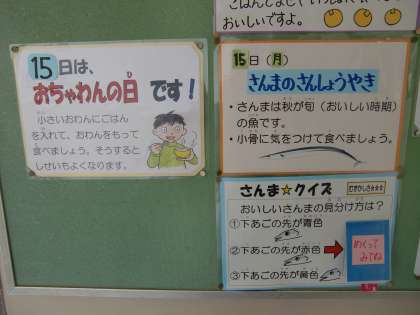 15日は、
おちゃわんの日です！
小さいおわんにごはん
を入れて、おわんをもって
食べましょう。そうすると
しせいもよくなります。
おいしいですよ。
15日（月）
さんまのさんしょうやき
・さんまは秋が旬（おいしい時期）
の魚です。
・小骨に気をつけて食べましょう。
さんま☆クイズ
おいしいさんまの見分け方は？
①下あごの先が青色
②下あごの先が赤色
③下あごの先が黄色
めくって
みてね